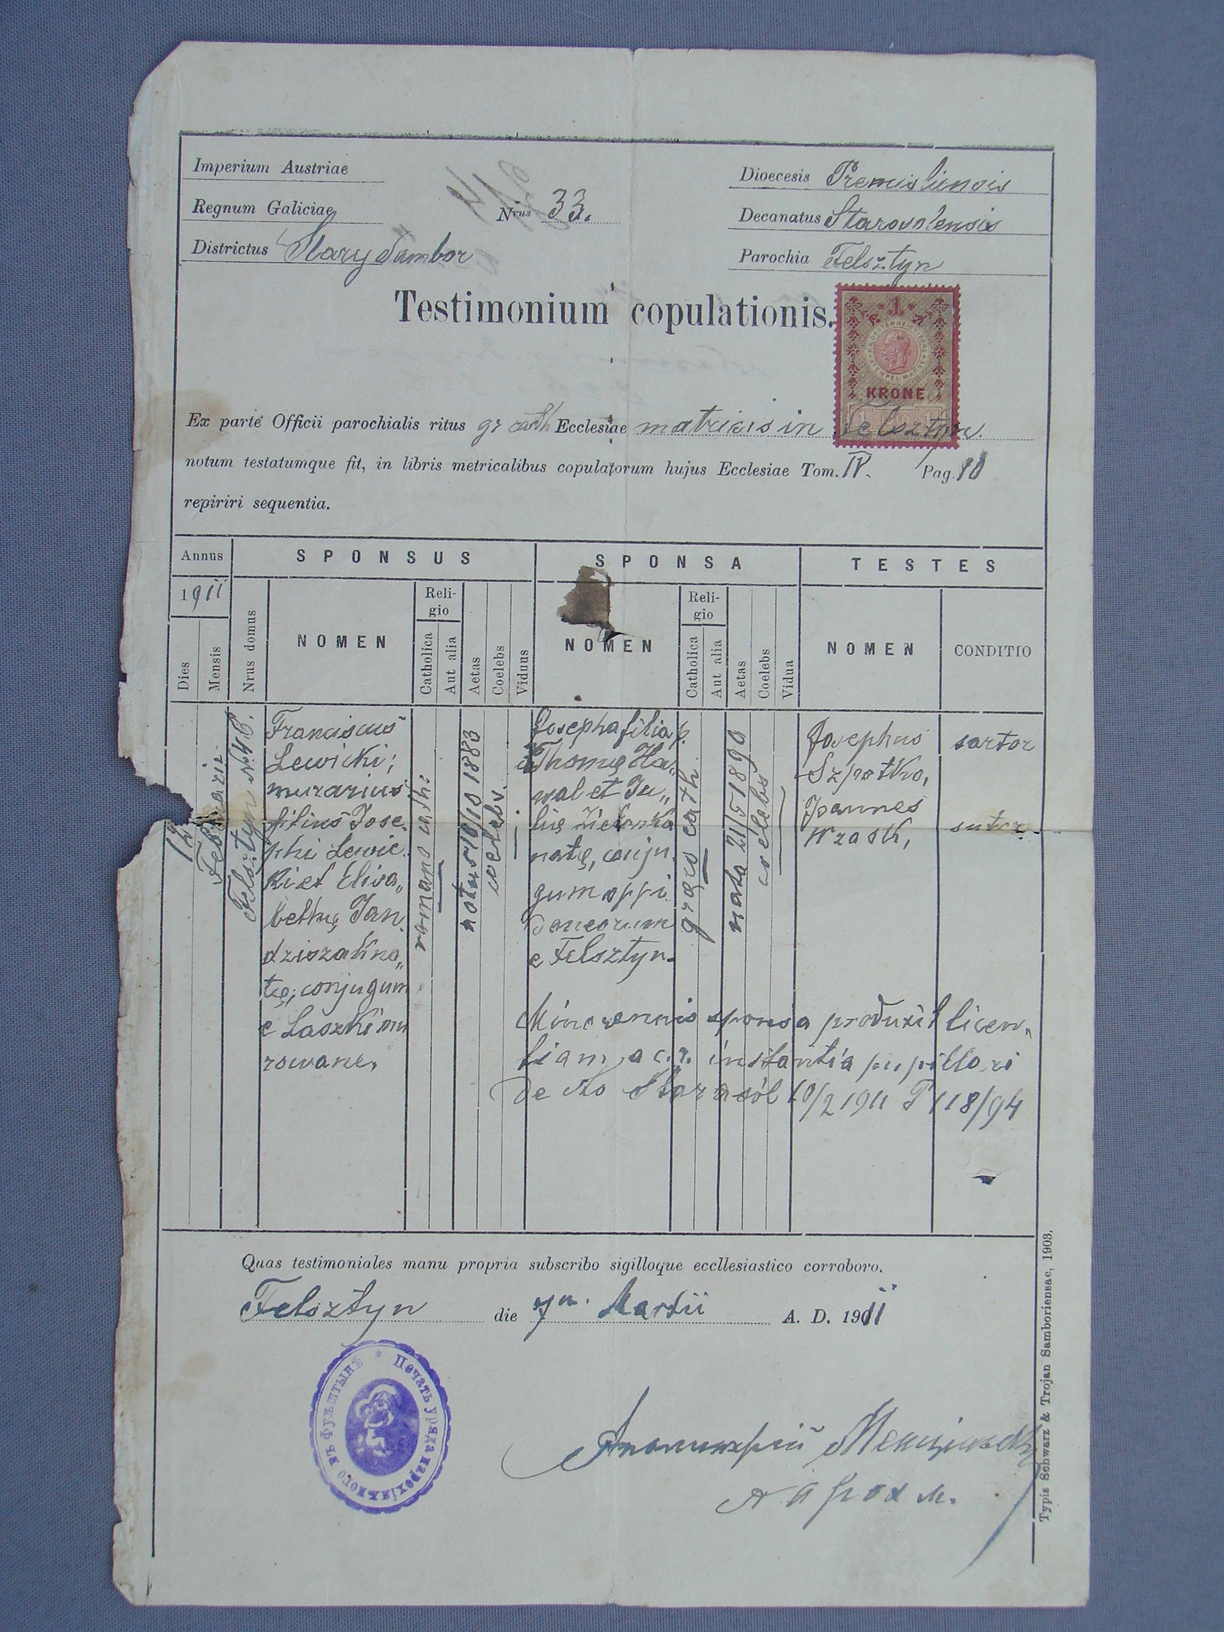 Imperium Austriae
Regnum Galiciae
Districtus Stary Sambor
Nrus 33.
Dioecesis Premisliensis
Decanatus Starosolensis
Parochia Felsztyn
Testimonium copulationis.
1
KRONE
Ex parte Officii parochialis ritus gr cath Ecclesiae matricis in Felsztyn.
notum testatumque fit, in libris metricalibus copulatorum hujus Ecclesiae Tom. IV. Pag. 10
repiriri sequentia.
Annus
1911
Dies
Mensis
Nrus domus
SPONSUS
NOMEN
Religio
Catholica
Aut alia
Aetas
Coelebs
Viduus
SPONSA
NOMEN
Religio
Catholica
Aut alia
Aetas
Coelebs
Vidua
TESTES
NOMEN
CONDITIO
Februarii
Felsztyn N.46.
Franciscus
Lewicki;
murarius
filius Jose,
phi Lewic.
ki et Elisa,,
bethę Jan.
dziszak na,,
tę, conjugum
e Laszki mu
rowane.
romano cath:
natus 10/10 1883
coelebs.
Josepha filia
Thomę Ha,
wal et Ju,,
lię
natę, conju,
gum oppi
daneorum
e Felsztyn.
gręco cath.
nata 21/5 1890
coelebs
Josephus
Szpotko,
Joannes
Wrzask,
sartor
sutor
Minorennis sponsa produxit licen,,
tiam a c.r. instantia pupillari
de dto Starasól 10/2 1911 P 118/94
Quas testimoniales manu propria subscribo sigilloque eccllesiastico corroboro.
Felsztyn die 7a. Martii A. D. 1911
Печать уряда парохіяльного въ Фульштынѣ
Typis Schwarz & Trojan Samboriensae, 1908.